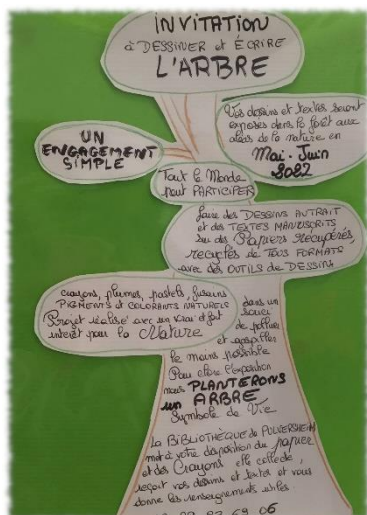 INVITATION
à DESSINER et ÉCRIRE
L'ARBRE
Vos dessins et textes seront
exposés dans la forêt aux
aléas de la nature en
Mai - Juin
2022
UN
ENGAGEMENT
SIMPLE
Tout le Monde
peut PARTICIPER
faire des DESSINS AU TRAIT
et des TEXTES MANUSCRITS
sur des Papiers récupérés,
recyclés de TOUS FORMATS
avec des OUTILS de DESSINS
crayons, plumes, pastels, fusains
PIGMENTS et COLORANTS NATURELS
Projet réalisé avec un vrai
intérêt pour la Nature
dans un
souci
de polluer
et gaspiller
le moins possible
Pour clore l'exposition
nous PLANTERONS
un ARBRE
Symbole de Vie
La BIBLIOTHÈQUE de PULVERSHEIM
met à votre disposition du papier
et des Crayons elle collecte,
reçoit vos dessins et textes et vous
donne les renseignements utiles